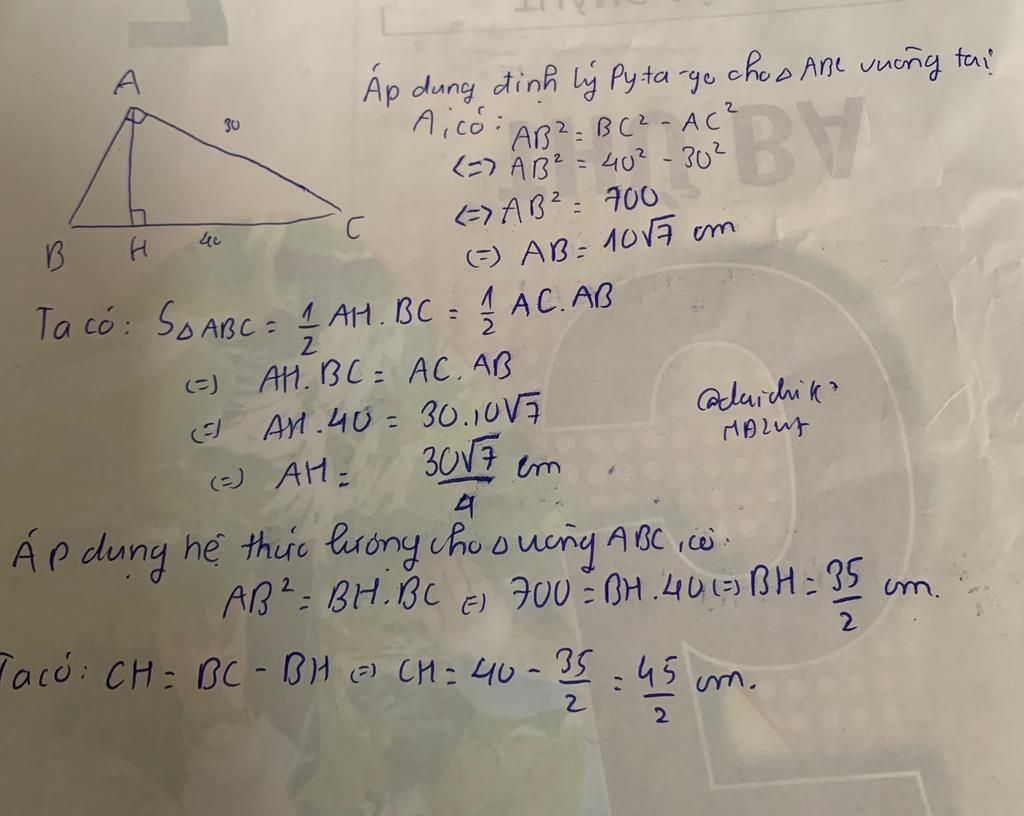 A
30
B
H
40
C
Áp dụng định lý Pyta-go cho Δ ABC vuông tại
A, có: AB² = BC² - AC²
<=> AB² = 40² - 30²
<=> AB² = 700
(=) AB = 10√7 cm
Ta có: SΔABC = 1/2 AH.BC = 1/2 AC.AB
(=) AH.BC = AC.AB
(=) AH.40 = 30.10√7
(=) AH = 30√7/4 cm
Áp dụng hệ thức lượng cho Δ vuông ABC, có:
AB² = BH.BC (=) 700 = BH.40 (=) BH = 35/2 cm.
Ta có: CH = BC - BH (=) CH = 40 - 35/2 = 45/2 cm.
THỨ BA